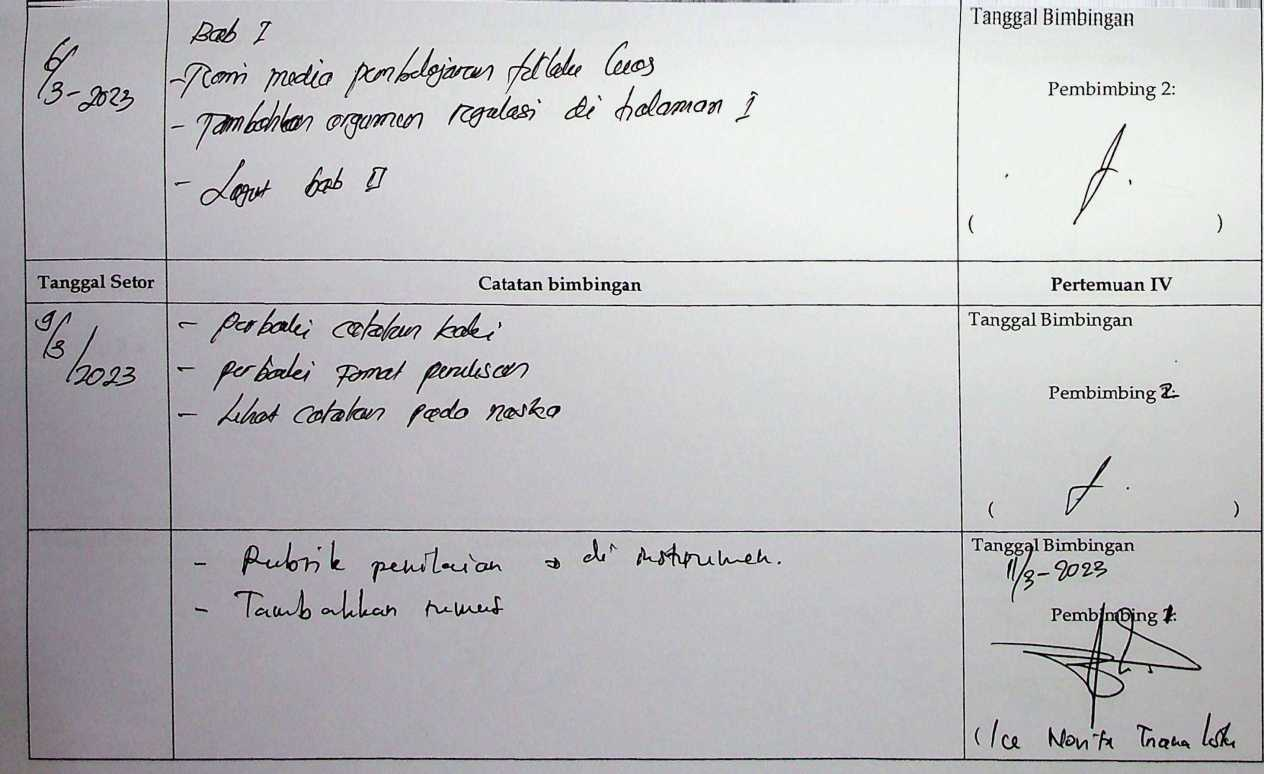 6/3-2023
Bab I
- Teori media pembelajaran terlalu luas
- Tambahkan argumen regulasi di halaman 1
- Lanjut bab II
Tanggal Bimbingan
Pembimbing 2:
( )
Tanggal Setor Catatan bimbingan Pertemuan IV
9/3/2023
- perbaiki catatan kaki
- perbaiki Format penulisan
- Lihat catatan pada naska
Tanggal Bimbingan
Pembimbing 2:
( )
- Rubrik penilaian → di instrumen.
- Tambahkan rumus
Tanggal Bimbingan
11/3-2023
Pembimbing 1:
(Ice Novita